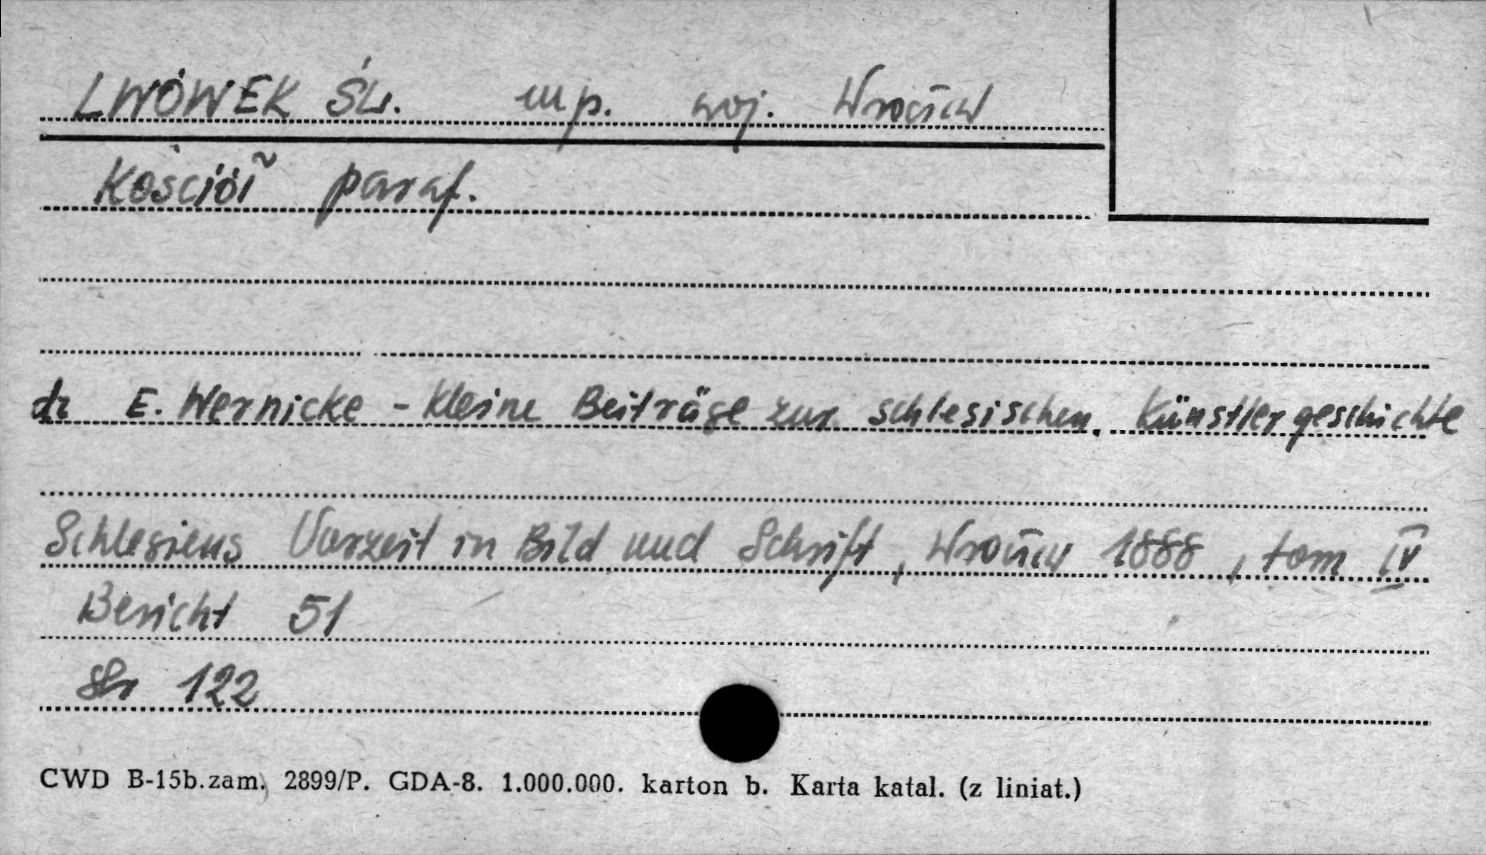 LWÓWEK ŚL. mp. woj. Wrocław
Kościół paraf.
dr E. Wernicke - Kleine Beiträge zur schlesischen Künstlergeschichte
Schlesiens Vorzeit in Bild und Schrift, Wrocław 1888, tom IV
Bericht 51
Str 122
CWD B-15b.zam. 2899/P. GDA-8. 1.000.000. karton b. Karta katal. (z liniat.)